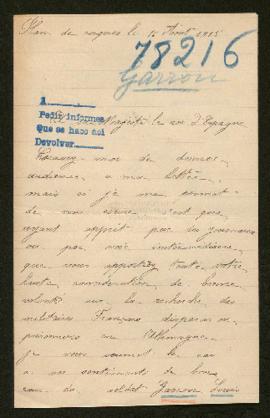 Plan de cuques le 15 Août 1915
78216
Garron
A
Pedir informes
Que se hace así
Devolver
Majesté le roi d'Espagne
Excusez moi de donner
audience a ma lettre
mais si je me permet
de vous écrire c'est que
ayant apprit par les journaux
ou par voix intermédiaire
que vous apportez toute votre
haute considération de bonne
volonté sur la recherche des
militaires Français disparus ou
prisonniers en Allemagne
je vous soumet le cas
a vos sentiments de bon
cœur du soldat Garron Louis